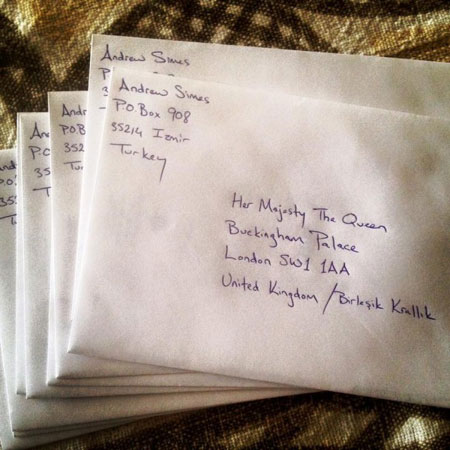 Andrew Simes
Andrew Simes
P.O. Box 908
35214 Izmir
Turkey
Her Majesty The Queen
Buckingham Palace
London SW1 1AA
United Kingdom / Birleşik Krallık